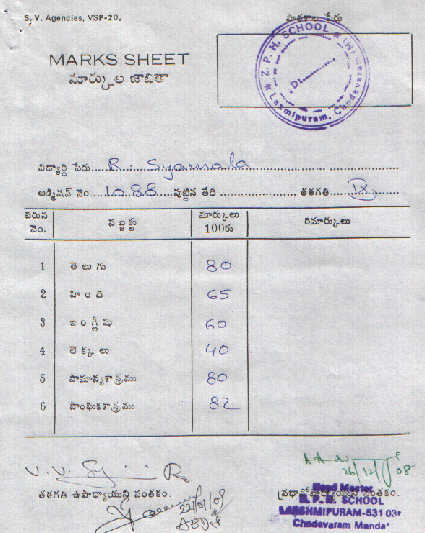 S. V. Agencies, VSP-20.
పాఠశాల పేరు
Z. P. H. SCHOOL
Laxmipuram, Chodavaram
MARKS SHEET
మార్కుల జాబితా
విద్యార్థి పేరు R. Syamala
అడ్మిషన్ నెం. 1088 పుట్టిన తేది తరగతి IX
వరుస నెం. సబ్జెక్టు మార్కులు 100కు రిమార్కులు
1 తెలుగు 80
2 హిందీ 65
3 ఇంగ్లీషు 60
4 లెక్కలు 40
5 సామాన్యశాస్త్రము 80
6 సాంఘికశాస్త్రము 82
తరగతి ఉపాధ్యాయుని సంతకం. ప్రధానోపాధ్యాయుని సంతకం.
Head Master
Z. P. H. SCHOOL
LAKSHMIPURAM-531 03
Chodavaram Mandal